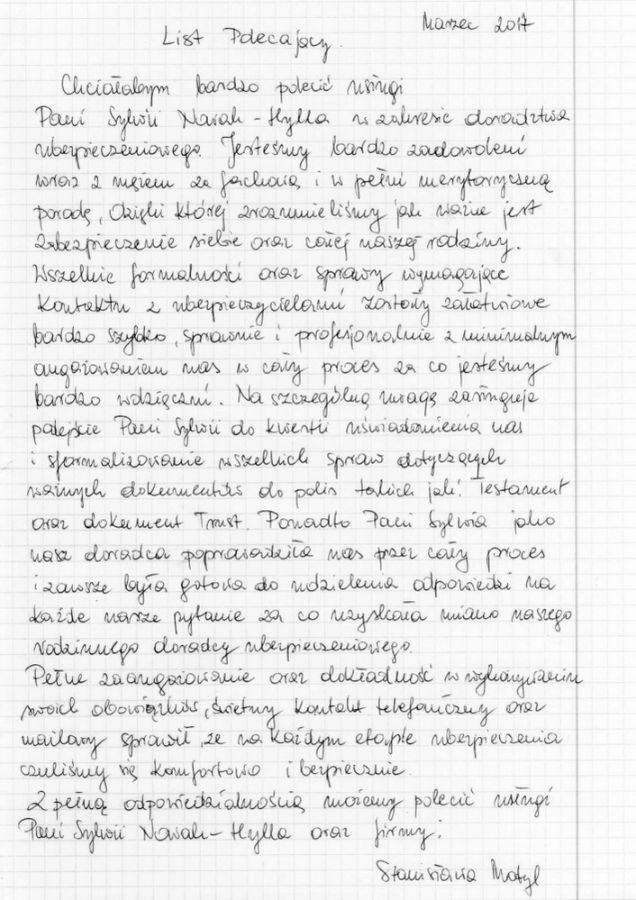 Marzec 2017
List Polecający.
Chciałabym bardzo polecić usługi
Pani Sylwii Nowak-Hylla w zakresie doradztwa
ubezpieczeniowego. Jesteśmy bardzo zadowoleni
wraz z mężem za fachową i w pełni merytoryczną
poradę, dzięki której zrozumieliśmy jak ważne jest
zabezpieczenie siebie oraz całej naszej rodziny.
Wszelkie formalności oraz sprawy wymagające
kontaktu z ubezpieczycielami zostały załatwione
bardzo szybko, sprawnie i profesjonalnie z minimalnym
angażowaniem nas w cały proces za co jesteśmy
bardzo wdzięczni. Na szczególną uwagę zasługuje
podejście Pani Sylwii do kwestii uświadomienia nas
i sformalizowanie wszelkich spraw dotyczących
ważnych dokumentów do polis takich jak: Testament
oraz dokument Trust. Ponadto Pani Sylwia jako
nasz doradca poprowadziła nas przez cały proces
i zawsze była gotowa do udzielenia odpowiedzi na
każde nasze pytanie za co uzyskała miano naszego
rodzinnego doradcy ubezpieczeniowego.
Pełne zaangażowanie oraz dokładność w wykonywaniu
swoich obowiązków, świetny kontakt telefoniczny oraz
mailowy sprawił, że na każdym etapie ubezpieczenia
czuliśmy się komfortowo i bezpiecznie.
Z pełną odpowiedzialnością możemy polecić usługi
Pani Sylwii Nowak-Hylla oraz firmy.
Stanisława Motyl